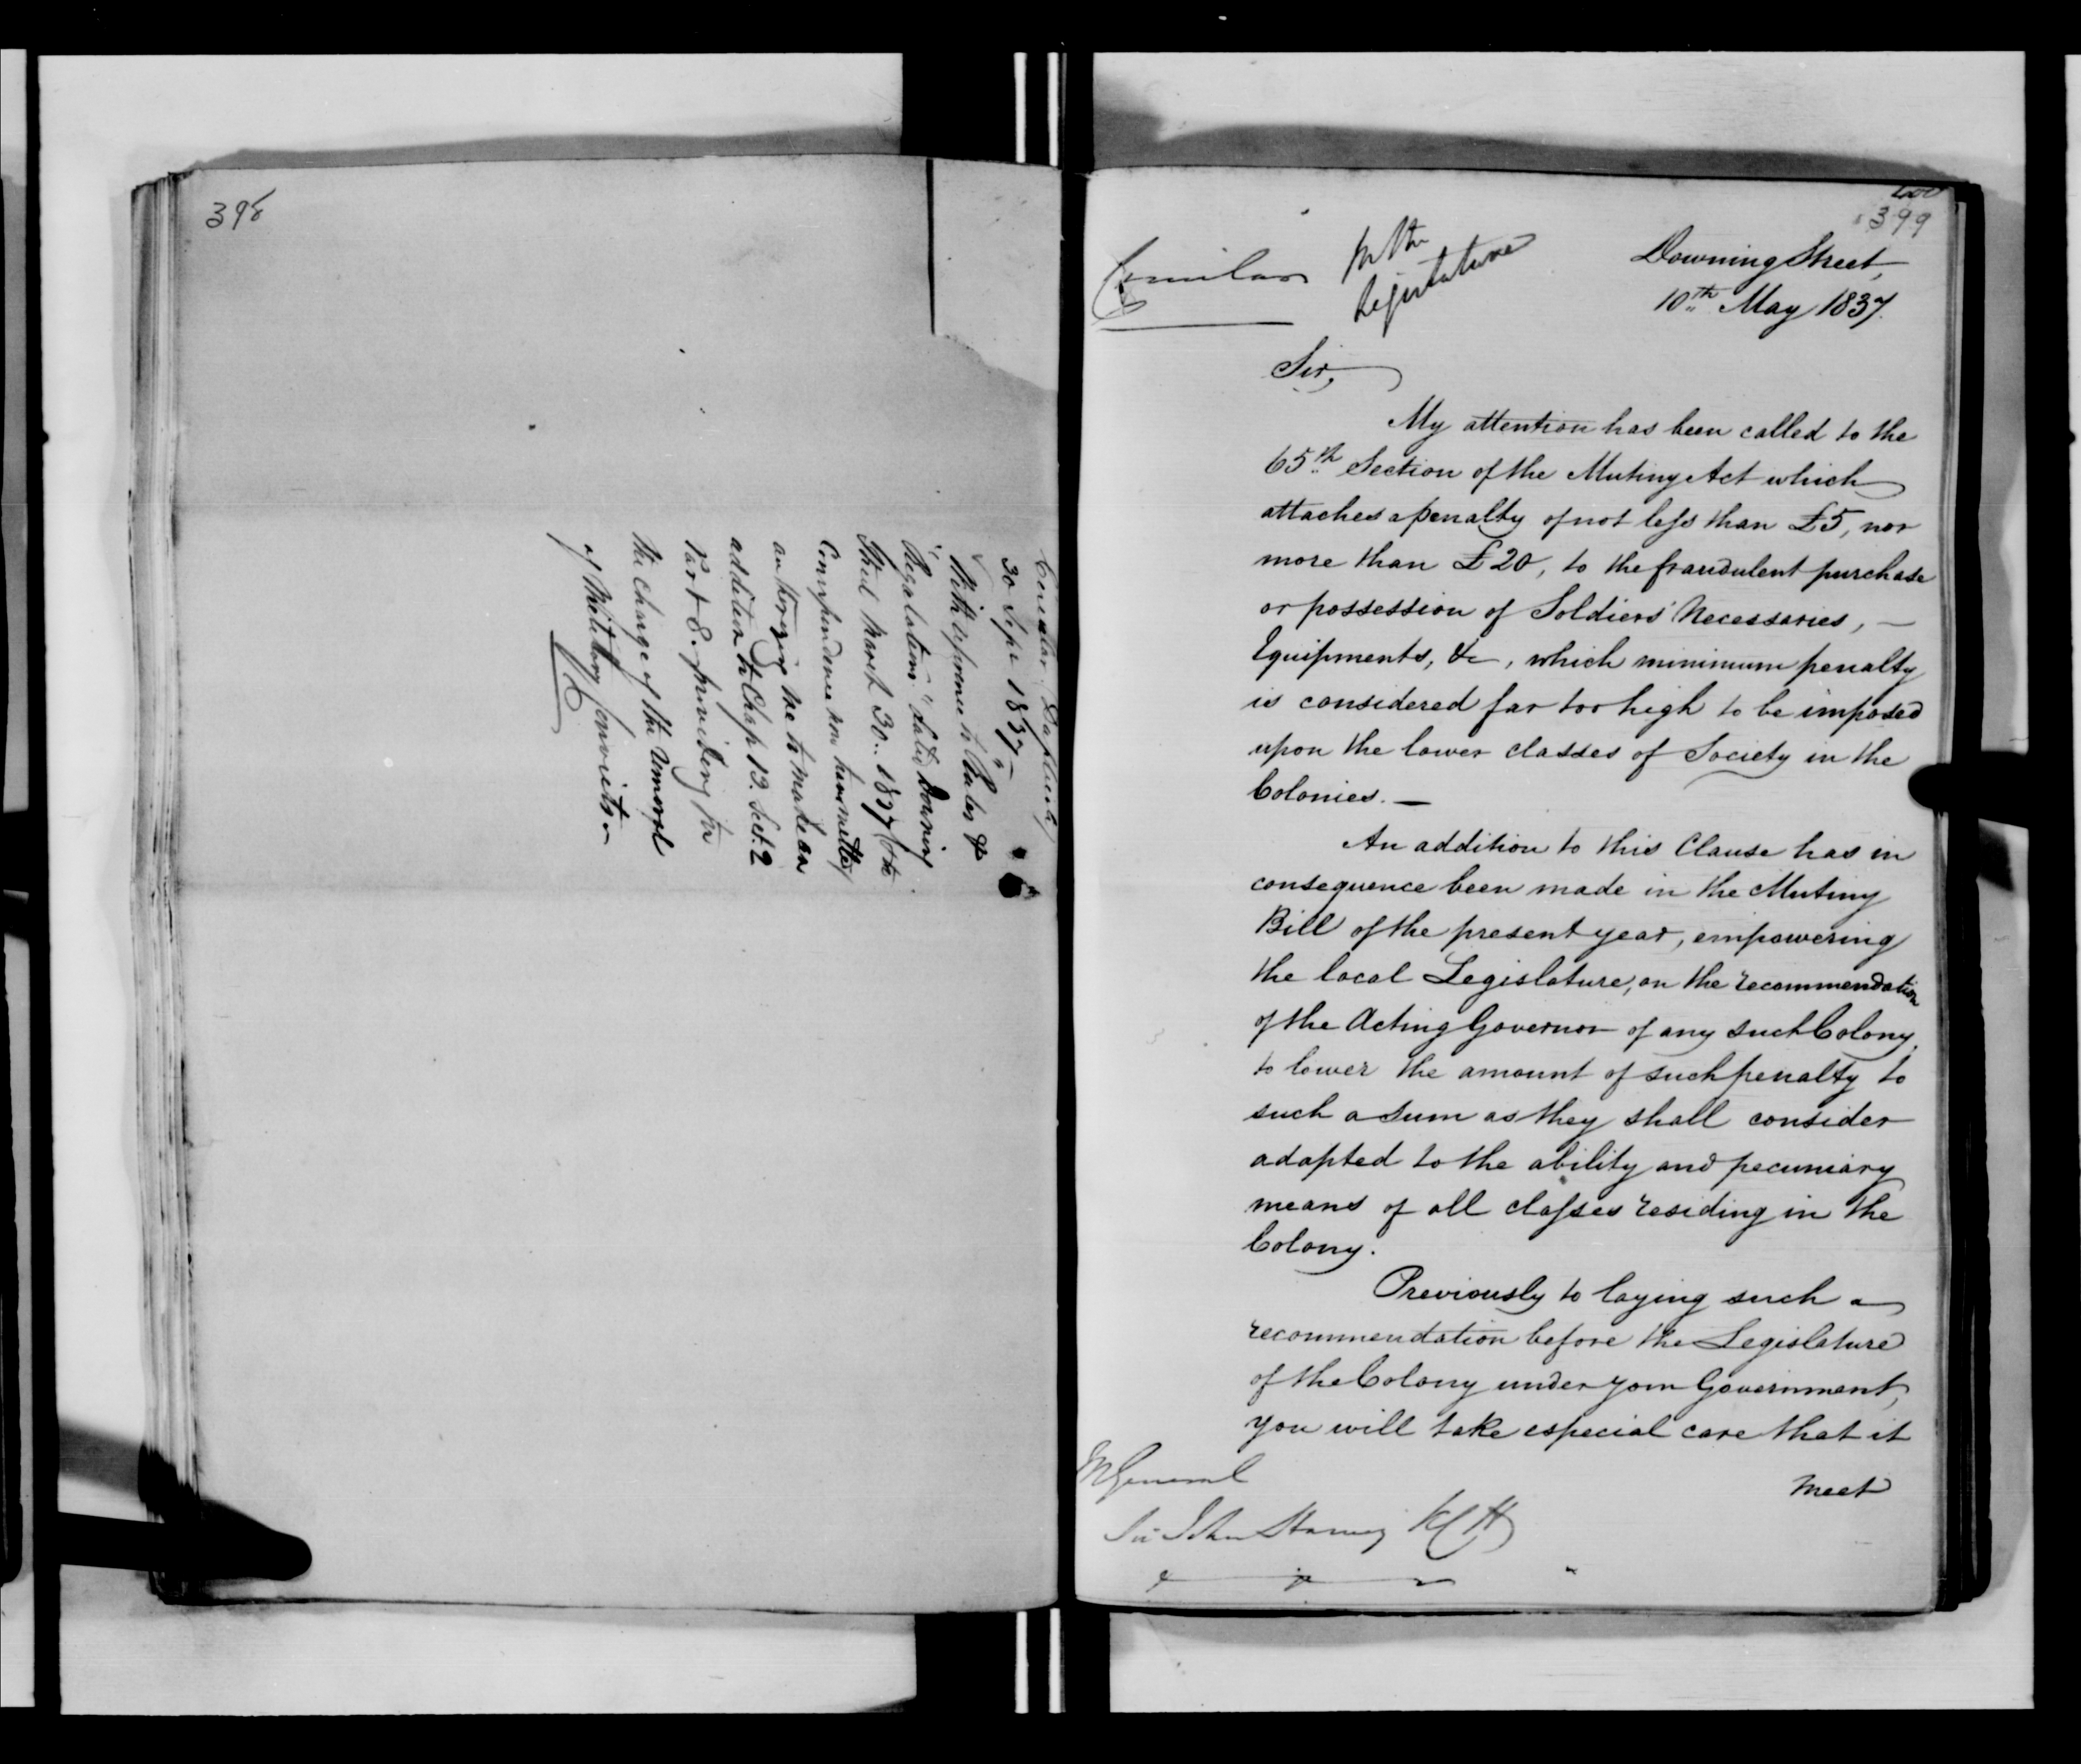 398
Circular (Duplicate)
30 Sept 1837 —
With reference to "Rules &
Regulations" dated Downing
Street March 30.. 1837 (the
Correspondence now transmitted)
authorizing me to make an
addition to Chap 12. Sect. 2
Part 8. providing for
the charge of the removal
of Military Convicts —
400
399
Circular
In the
Legislature
Downing Street,
10th May 1837.
Sir,
My attention has been called to the
65th Section of the Mutiny Act which
attaches a penalty of not less than £5, nor
more than £20, to the fraudulent purchase
or possession of Soldiers' Necessaries, —
Equipments, &c, which minimum penalty
is considered far too high to be imposed
upon the lower classes of Society in the
Colonies. —
An addition to this Clause has in
consequence been made in the Mutiny
Bill of the present year, empowering
the local Legislature, on the recommendation
of the Acting Governor of any such Colony,
to lower the amount of such penalty to
such a sum as they shall consider
adapted to the ability and pecuniary
means of all classes residing in the
Colony.
Previously to laying such a
recommendation before the Legislature
of the Colony under your Government,
you will take especial care that it
meet
M General
Sir John Harvey KCH